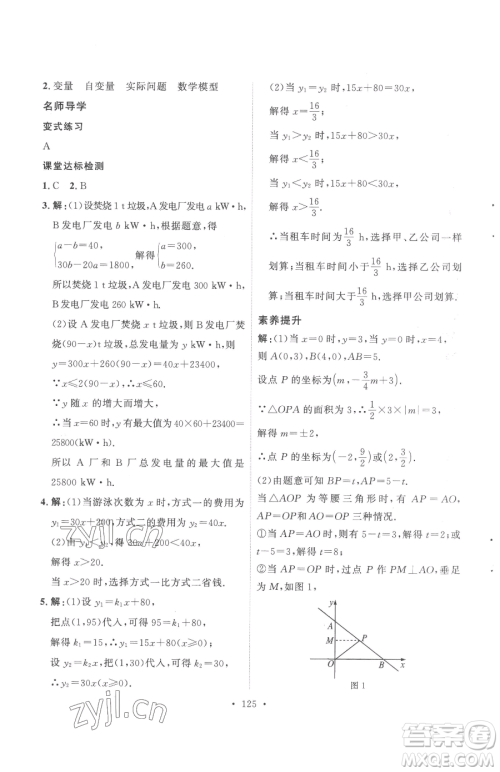 2. 变量 自变量 实际问题 数学模型
名师导学
变式练习
A
课堂达标检测
1. C 2. B
3. 解：(1)设焚烧 1 t 垃圾，A 发电厂发电 a kW·h，
B 发电厂发电 b kW·h，根据题意，得
{a-b=40, 30b-20a=1800, 解得{a=300, b=260.
所以焚烧 1 t 垃圾，A 发电厂发电 300 kW·h，
B 发电厂发电 260 kW·h.
(2)设 A 发电厂焚烧 x t 垃圾，则 B 发电厂焚
烧(90-x) t 垃圾，总发电量为 y kW·h，则
y=300x+260(90-x)=40x+23400.
∵x≤2(90-x)，∴x≤60.
∵y 随 x 的增大而增大，
∴当 x=60 时，y 有最大值为 40×60+23400=
25800(kW·h).
所以 A 厂和 B 厂总发电量的最大值是
25800 kW·h.
4. 解：(1)当游泳次数为 x 时，方式一的费用为
y₁=30x+200，方式二的费用为 y₂=40x.
(2)由 y₁<y₂，得 30x+200<40x，
解得 x>20.
当 x>20 时，选择方式一比方式二省钱.
5. 解：(1)设 y₁=k₁x+80，
把点(1，95)代入，得 95=k₁+80，
解得 k₁=15，∴y₁=15x+80(x≥0).
设 y₂=k₂x，把(1，30)代入，得 k₂=30，
∴y₂=30x(x≥0).
(2)当 y₁=y₂ 时，15x+80=30x，
解得 x=16/3；
当 y₁>y₂ 时，15x+80>30x，
解得 x<16/3；
当 y₁<y₂ 时，15x+80<30x，
解得 x>16/3.
∴当租车时间为16/3 h，选择甲、乙公司一样
划算；当租车时间小于16/3 h，选择乙公司划算；
当租车时间大于16/3 h，选择甲公司划算.
素养提升
解：(1)当 x=0 时，y=3，当 y=0 时，x=4.
则 A(0，3)，B(4，0)，AB=5.
设点 P 的坐标为(m，-3/4m+3).
∵△OPA 的面积为 3，∴1/2×3×|m|=3.
∴m=±2.
∴点 P 的坐标为(-2，9/2)或(2，3/2).
(2)由题意可知 BP=t，AP=5-t，
当△AOP 为等腰三角形时，有 AP=AO、
AP=OP、AO=OP 三种情况.
①当 AP=AO 时，则有 5-t=3 或
t-5=3，∴t=2 或 t=8；
②当 AP=OP 时，过点 P 作 PM⊥AO，垂足
为 M，如图 1，
y
A
M
P
O
B
x
图 1
zyjl.cn
zyjl.cn
·125·
答案圈
MXQE.COM